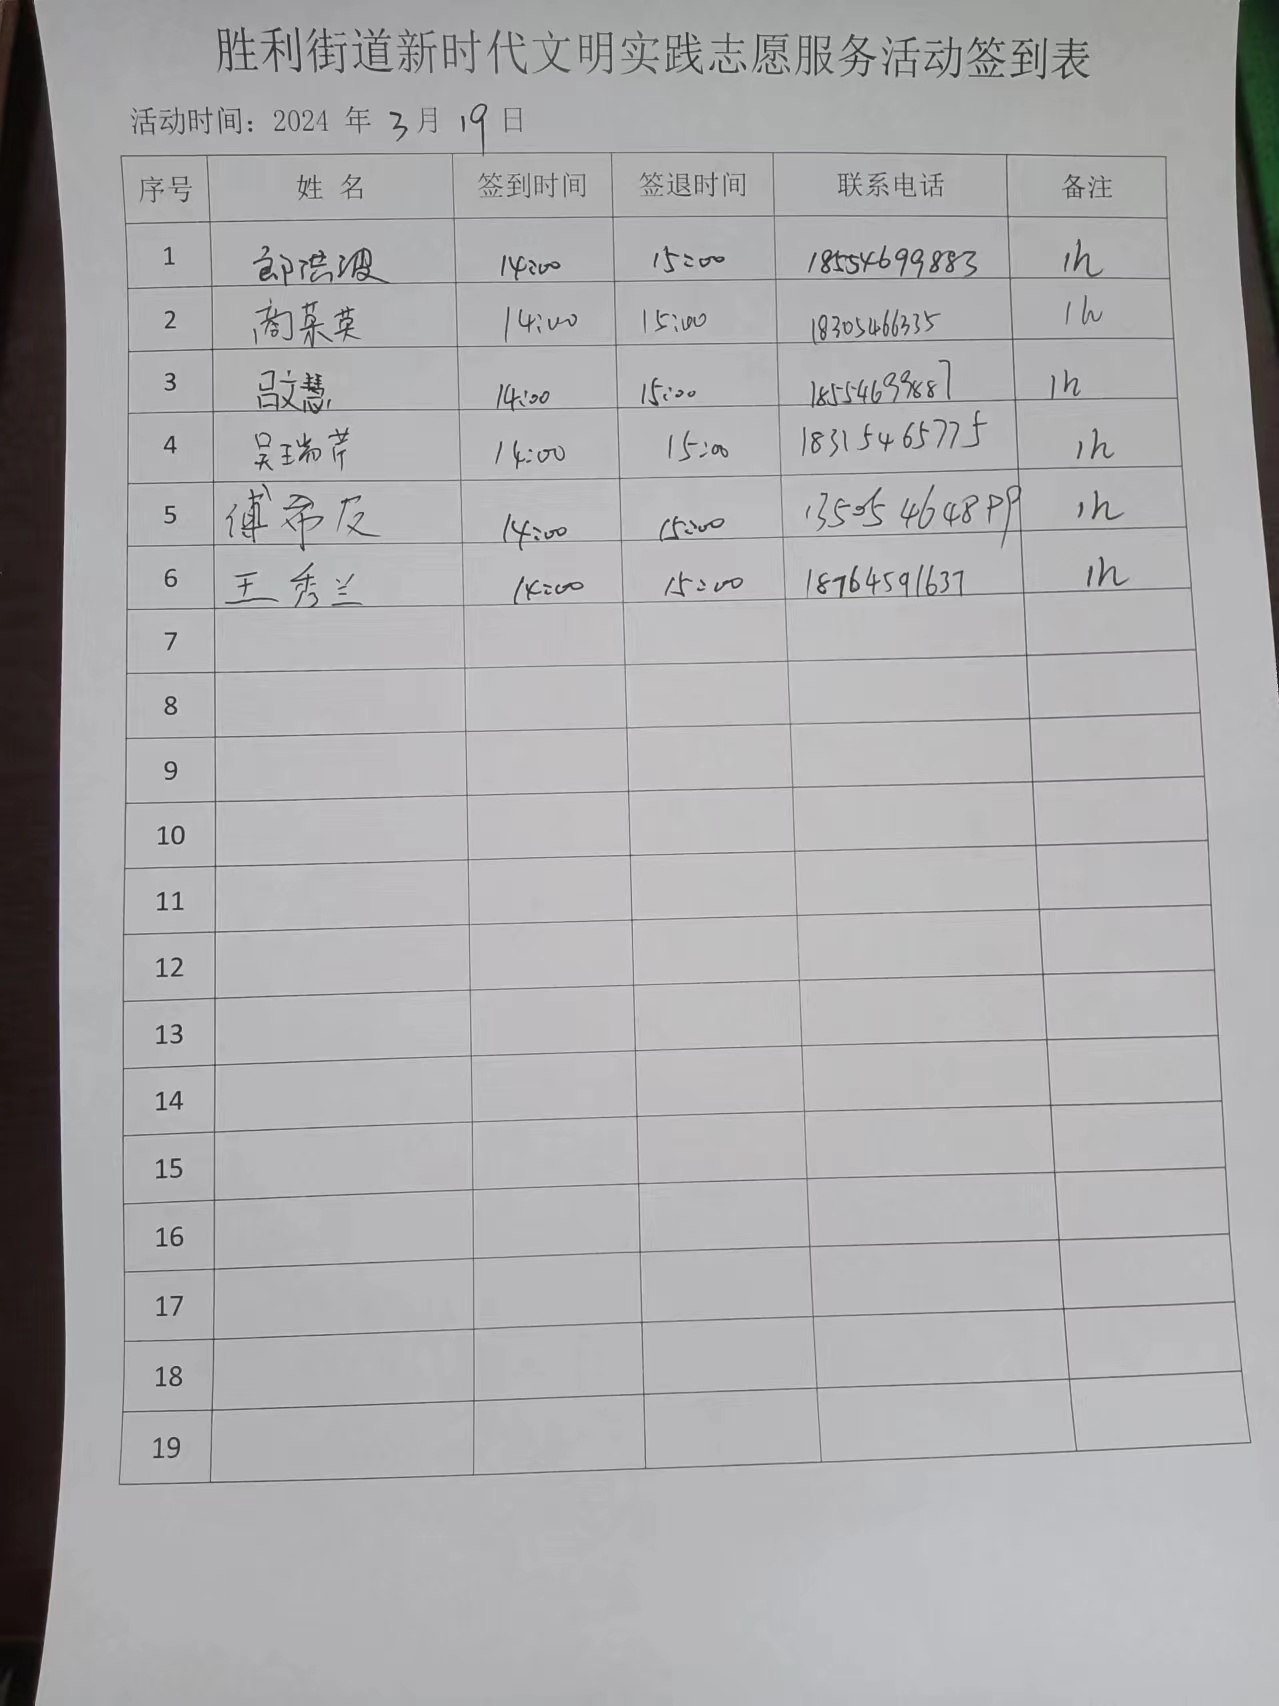 胜利街道新时代文明实践志愿服务活动签到表
活动时间：2024 年 3 月 19 日
序号 姓 名 签到时间 签退时间 联系电话 备注
1 郎洪波 14:00 15:00 18554699883 1h
2 商菜英 14:00 15:00 18305466335 1h
3 吕文慧 14:00 15:00 18554699887 1h
4 吴瑞芹 14:00 15:00 18315465775 1h
5 傅希 14:00 15:00 13505464899 1h
6 王秀兰 14:00 15:00 18764591637 1h
7
8
9
10
11
12
13
14
15
16
17
18
19